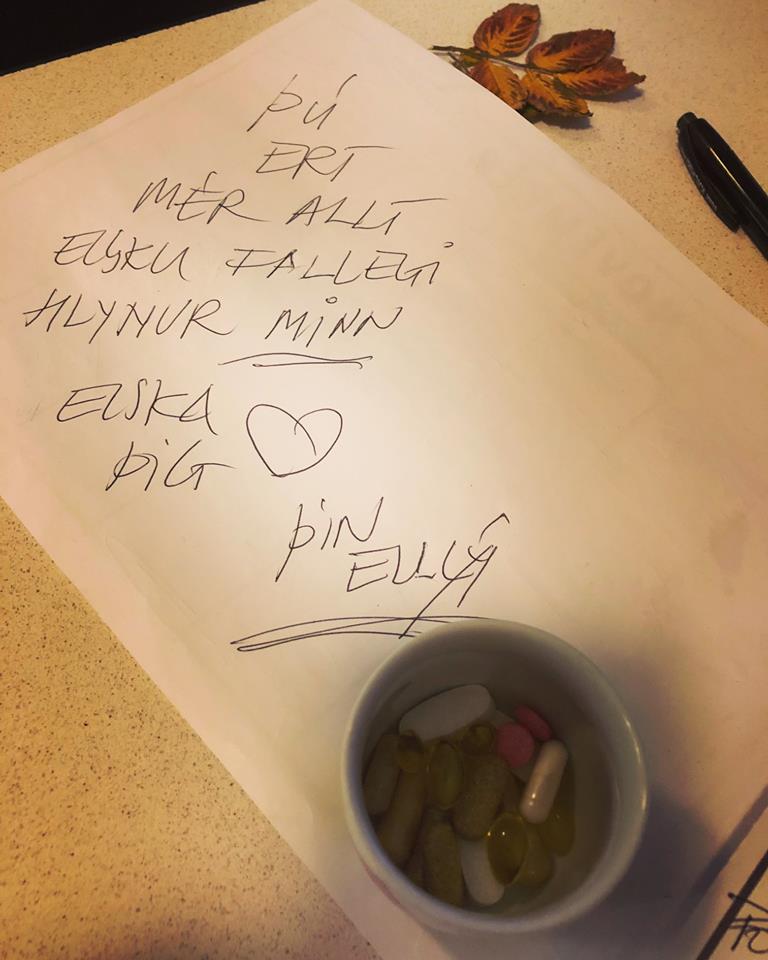 ÞÚ
ERT
MÉR ALLT
ELSKU FALLEGI
HLYNUR MINN
ELSKA
ÞIG
ÞÍN
ELLÝ